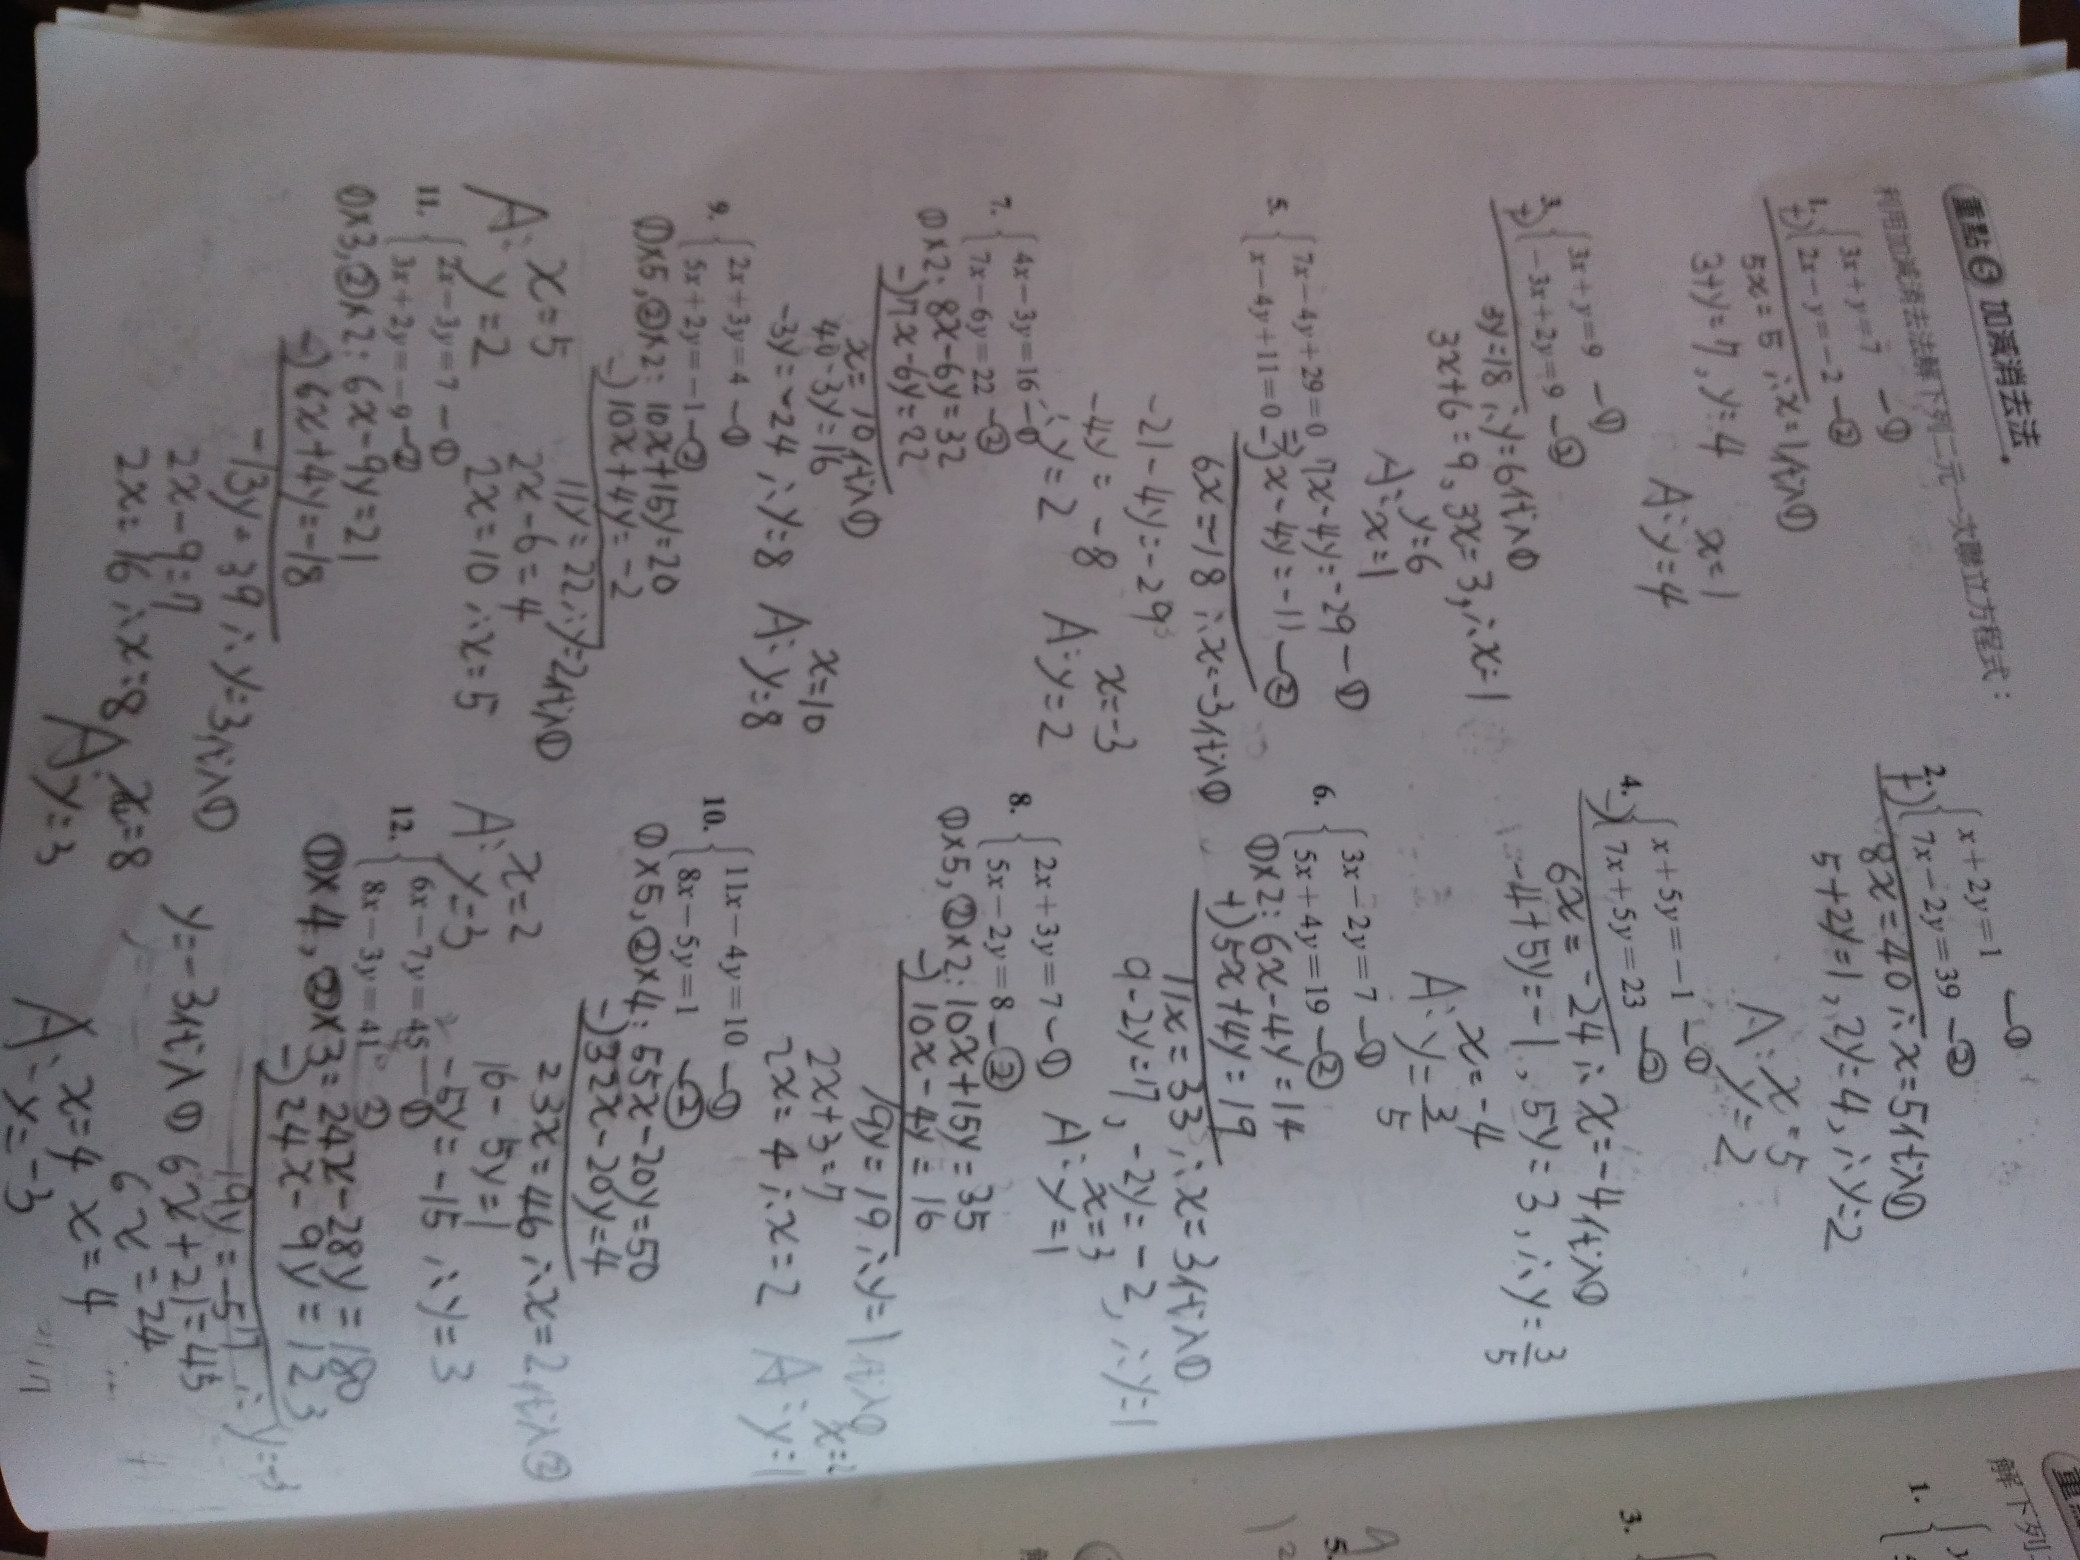 重點6 加減消去法
利用加減消去法解下列二元一次聯立方程式：
1. {3x+y=7 —①
+) 2x−y=−2 —②
5x=5 ∴x=1代入①
3+y=7, y=4
x=1
A: y=4
2. {x+2y=1 —①
+) 7x−2y=39 —②
8x=40 ∴x=5代入①
5+2y=1, 2y=4, ∴y=2
A: x=5
y=2
3. {3x+y=9 —①
+) −3x+2y=9 —②
3y=18 ∴y=6代入①
3x+6=9, 3x=3, ∴x=1
y=6
A: x=1
4. {x+5y=−1 —①
−) 7x+5y=23 —②
6x=−24 ∴x=−4代入①
−4+5y=−1, 5y=3, ∴y=3/5
x=−4
A: y=3/5
5. {7x−4y+29=0 7x−4y=−29 —①
x−4y+11=0 −) x−4y=−11 —②
6x=−18 ∴x=−3代入①
−21−4y=−29
−4y=−8
∴y=2
x=−3
A: y=2
6. {3x−2y=7 —①
5x+4y=19 —②
①×2: 6x−4y=14
+) 5x+4y=19
11x=33 ∴x=3代入①
9−2y=7, −2y=−2, ∴y=1
x=3
A: y=1
7. {4x−3y=16 —①
7x−6y=22 —②
①×2: 8x−6y=32
−) 7x−6y=22
x=10代入①
40−3y=16
−3y=−24 ∴y=8
x=10
A: y=8
8. {2x+3y=7 —①
5x−2y=8 —②
①×5, ②×2: 10x+15y=35
−) 10x−4y=16
19y=19 ∴y=1代入①
2x+3=7
2x=4 ∴x=2
x=2
A: y=1
9. {2x+3y=4 —①
5x+2y=−1 —②
①×5, ②×2: 10x+15y=20
−) 10x+4y=−2
11y=22 ∴y=2代入①
2x−6=4
2x=10 ∴x=5
A: x=5
y=2
10. {11x−4y=10 —①
8x−5y=1 —②
①×5, ②×4: 55x−20y=50
−) 32x−20y=4
23x=46 ∴x=2代入②
16−5y=1
−5y=−15 ∴y=3
x=2
A: y=3
11. {2x−3y=7 —①
3x+2y=−9 —②
①×3, ②×2: 6x−9y=21
−) 6x+4y=−18
−13y=39 ∴y=3代入①
2x−9=7
2x=16 ∴x=8
x=8
A: y=3
12. {6x−7y=45 —①
8x−3y=41 ②
①×4, ②×3=24x−28y=180
−) 24x−9y=123
19y=−57 ∴y=−3
y=−3代入① 6x+21=45
6x=24
x=4
x=4
A: y=−3
解下列
1.
3.
5.